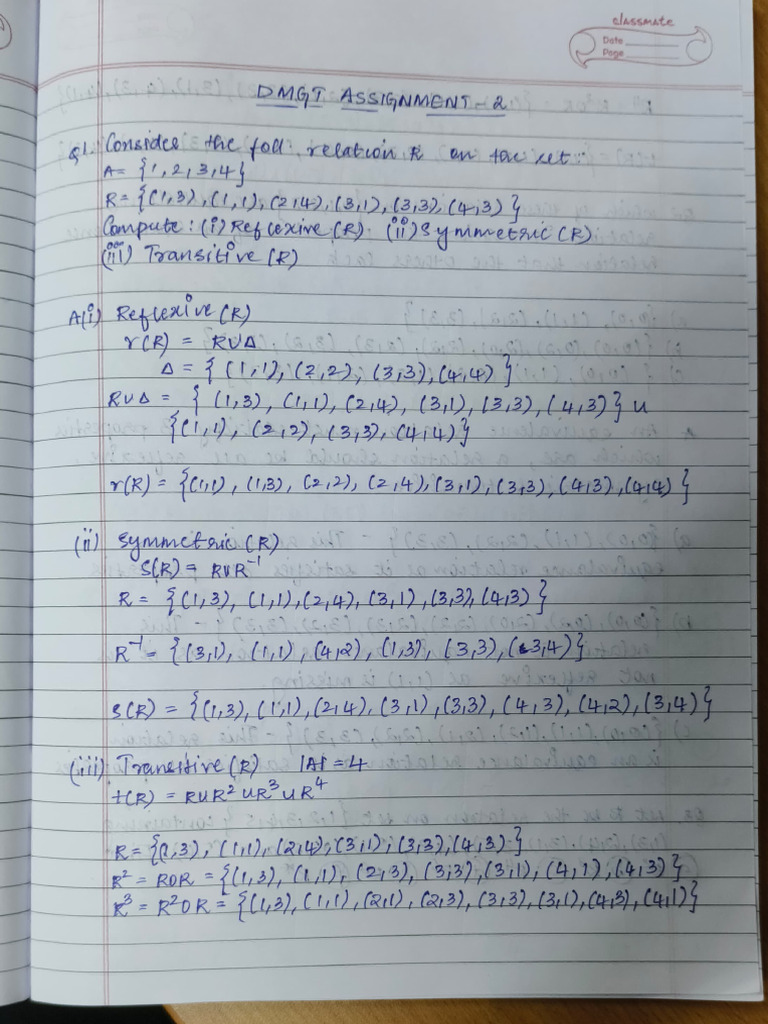 classmate
Date
Page
DMGT ASSIGNMENT - 2
Q1. Consider the foll relation R on the set:
A = {1, 2, 3, 4}
R = {(1,3), (1,1), (2,4), (3,1), (3,3), (4,3)}
Compute: (i) Reflexive (R) (ii) Symmetric (R)
(iii) Transitive (R)
A(i) Reflexive (R)
r(R) = RUΔ
Δ = {(1,1), (2,2), (3,3), (4,4)}
RUΔ = {(1,3), (1,1), (2,4), (3,1), (3,3), (4,3)} U
{(1,1), (2,2), (3,3), (4,4)}
r(R) = {(1,1), (1,3), (2,2), (2,4), (3,1), (3,3), (4,3), (4,4)}
(ii) Symmetric (R)
S(R) = RUR⁻¹
R = {(1,3), (1,1), (2,4), (3,1), (3,3), (4,3)}
R⁻¹ = {(3,1), (1,1), (4,2), (1,3), (3,3), (3,4)}
S(R) = {(1,3), (1,1), (2,4), (3,1), (3,3), (4,3), (4,2), (3,4)}
(iii) Transitive (R) |A| = 4
t(R) = RUR² UR³ UR⁴
R = {(1,3), (1,1), (2,4), (3,1), (3,3), (4,3)}
R² = ROR = {(1,3), (1,1), (2,3), (3,3), (3,1), (4,1), (4,3)}
R³ = R²OR = {(1,3), (1,1), (2,1), (2,3), (3,3), (3,1), (4,3), (4,1)}